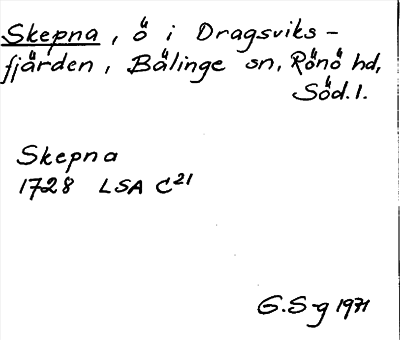 Skepna, ö i Dragsviks-
fjärden, Bälinge sn, Rönö hd,
Söd. l.
Skepna
1728 LSA C21
G.S-g 1971